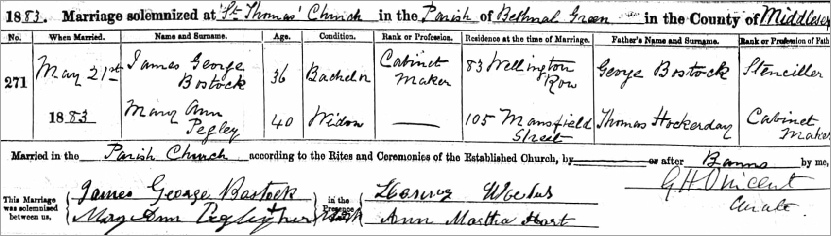 1883. Marriage solemnized at St Thomas' Church in the Parish of Bethnal Green in the County of Middlesex
No. When Married. Name and Surname. Age. Condition. Rank or Profession. Residence at the time of Marriage. Father's Name and Surname. Rank or Profession of Fath
271 May 21st James George Bostock 36 Bachelor Cabinet Maker 83 Wellington Row George Bostock Stenciller
1883 Mary Ann Pegley 40 Widow — 105 Mansfield Street Thomas Hockerday Cabinet Maker
Married in the Parish Church according to the Rites and Ceremonies of the Established Church, by or after Banns by me,
This Marriage was solemnized between us,
James George Bostock
Mary Ann Pegley + her Mark
in the Presence
Ann Martha Hart
G H Vincent
Curate.